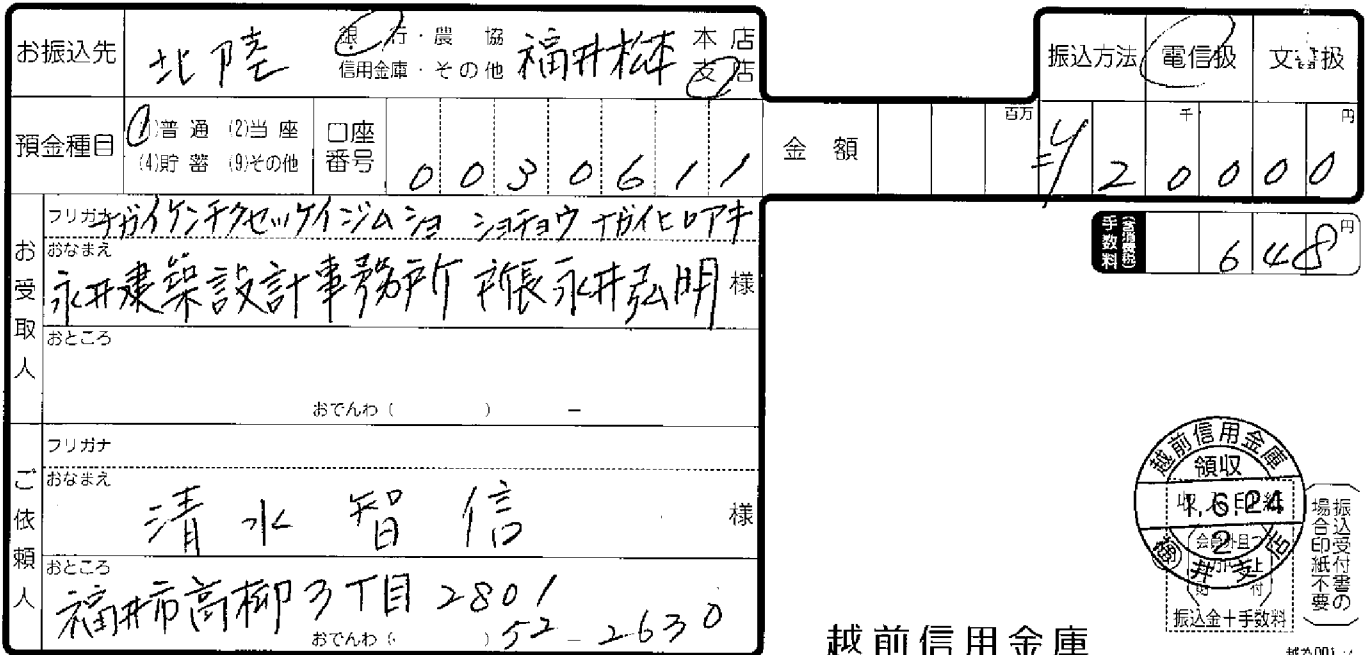 お振込先 北陸 銀行・農協 信用金庫・その他 福井松本 本店 支店
振込方法 電信扱 文書扱
預金種目 (1)普通 (2)当座 (4)貯蓄 (9)その他
口座番号 0030611
金額 百万 千 円 ¥20000
手数料 (含消費税) 648円
お受取人
フリガナ ナガイケンチクセッケイジムショ ショチョウ ナガイヒロアキ
おなまえ
永井建築設計事務所 所長永井弘明 様
おところ
おでんわ ( ) −
ご依頼人
フリガナ
おなまえ
清水智信 様
おところ
福井市高柳3丁目2801
おでんわ ( ) 52−2630
越前信用金庫
領収
1.6.24
2
福井支店
収入印紙
振込金+手数料
振込受付書の
場合印紙不要
越前信用金庫